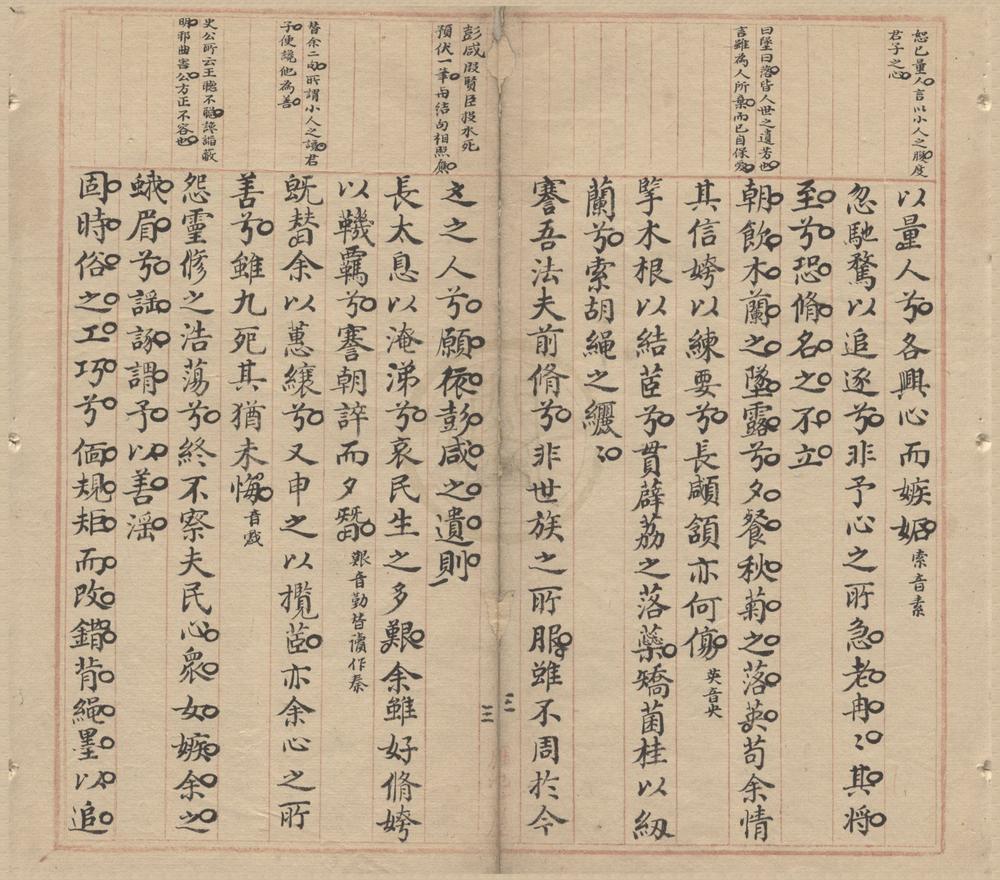 恕己量人言以小人之腹度
君子之心
曰墜曰落皆人世之遺芳也
言雖為人所棄而已自保愛
以量人兮各興心而嫉妬索音素
忽馳騖以追逐兮非予心之所急老冉〻其將
至兮恐脩名之不立
朝飲木蘭之墜露兮夕餐秋菊之落英苟余情
其信姱以練要兮長顑頷亦何傷英音央
擥木根以結茝兮貫薜荔之落蘂矯菌桂以紉
蘭兮索胡繩之纚〻
謇吾法夫前脩兮非世族之所服雖不周於今
彭咸殷賢臣投水死
預伏一筆與結句相照應
皆余二句所謂小人之讀君
子便謗他為善
史公所云王聽不聰讒諂蔽
明邪曲害公方正不容也
之之人兮願依彭咸之遺則
長太息以淹涕兮哀民生之多艱余雖好脩姱
以鞿羈兮謇朝誶而夕替艱音勤替讀作秦
旣替余以蕙纕兮又申之以攬茝亦余心之所
善兮雖九死其猶未悔音戲
怨靈脩之浩蕩兮終不察夫民心衆女嫉余之
蛾眉兮謡諑謂予以善滛
固時俗之工巧兮偭規矩而改錯背繩墨以追
三
三